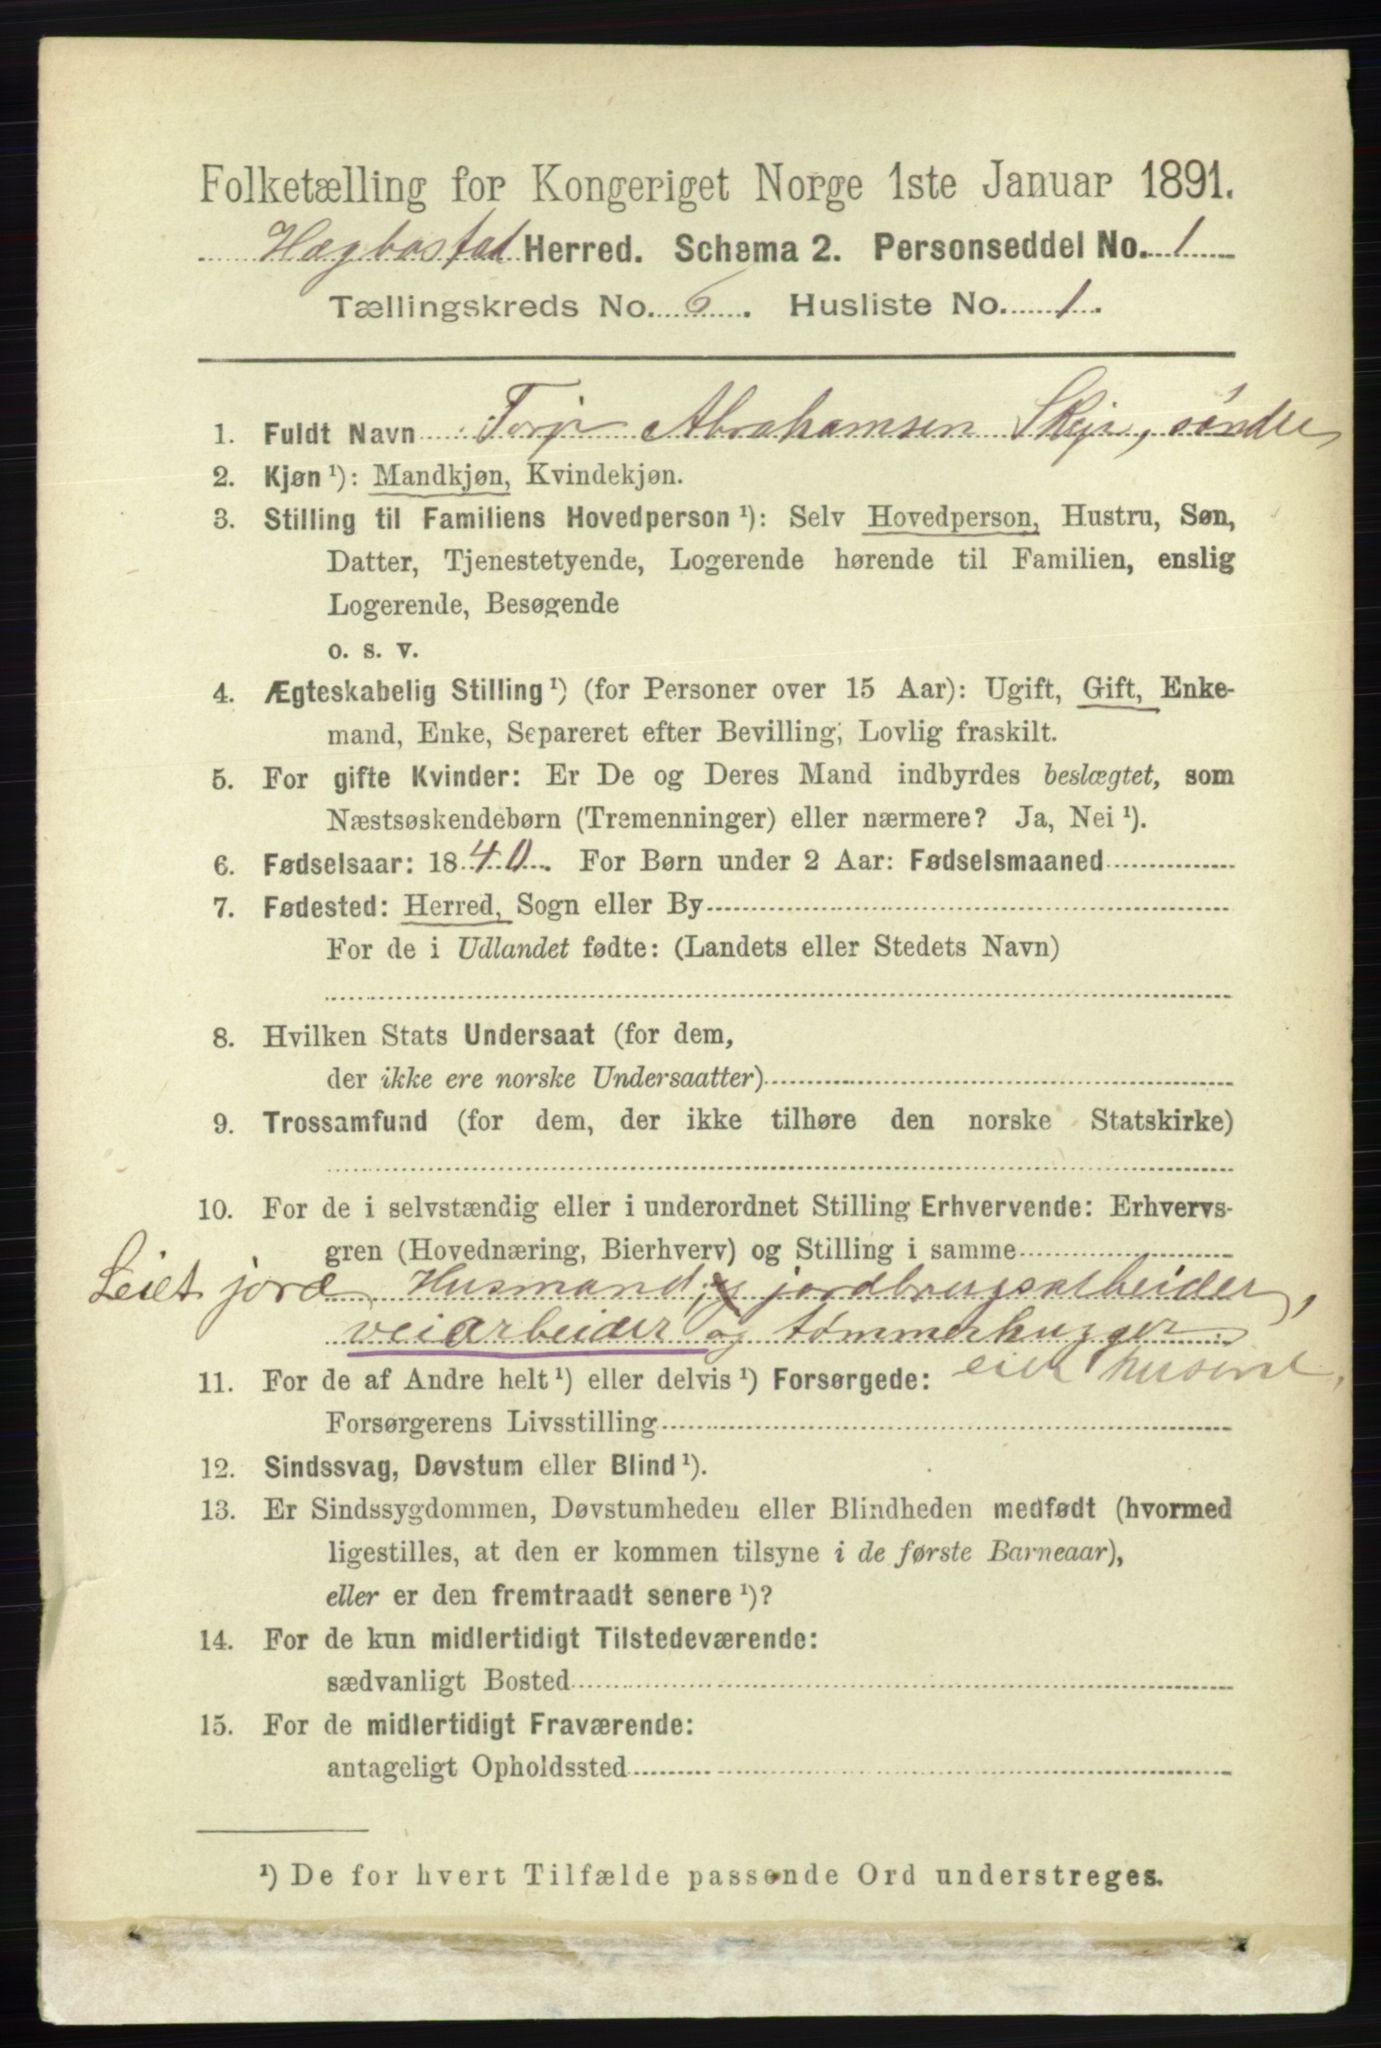 Folketælling for Kongeriget Norge 1ste Januar 1891.
Hægbostad Herred. Schema 2. Personseddel No. 1
Tællingskreds No. 6. Husliste No. 1.
1. Fuldt Navn Terje Abrahamsen Skeje, søndre
2. Kjøn ¹): Mandkjøn, Kvindekjøn.
3. Stilling til Familiens Hovedperson ¹): Selv Hovedperson, Hustru, Søn,
Datter, Tjenestetyende, Logerende hørende til Familien, enslig
Logerende, Besøgende
o. s. v.
4. Ægteskabelig Stilling ¹) (for Personer over 15 Aar): Ugift, Gift, Enke-
mand, Enke, Separeret efter Bevilling, Lovlig fraskilt.
5. For gifte Kvinder: Er De og Deres Mand indbyrdes beslægtet, som
Næstsøskendebørn (Tremenninger) eller nærmere? Ja, Nei ¹).
6. Fødselsaar: 1840. For Børn under 2 Aar: Fødselsmaaned
7. Fødested: Herred, Sogn eller By
For de i Udlandet fødte: (Landets eller Stedets Navn)
8. Hvilken Stats Undersaat (for dem,
der ikke ere norske Undersaatter)
9. Trossamfund (for dem, der ikke tilhøre den norske Statskirke)
10. For de i selvstændig eller i underordnet Stilling Erhvervende: Erhvervs-
gren (Hovednæring, Bierhverv) og Stilling i samme
Leiet jord, Husmand, og jordbrugsarbeider,
veiarbeider og tømmerhugger.
eier husene,
11. For de af Andre helt ¹) eller delvis ¹) Forsørgede:
Forsørgerens Livsstilling
12. Sindssvag, Døvstum eller Blind ¹).
13. Er Sindssygdommen, Døvstumheden eller Blindheden medfødt (hvormed
ligestilles, at den er kommen tilsyne i de første Barneaar),
eller er den fremtraadt senere ¹)?
14. For de kun midlertidigt Tilstedeværende:
sædvanligt Bosted
15. For de midlertidigt Fraværende:
antageligt Opholdssted
¹) De for hvert Tilfælde passende Ord understreges.